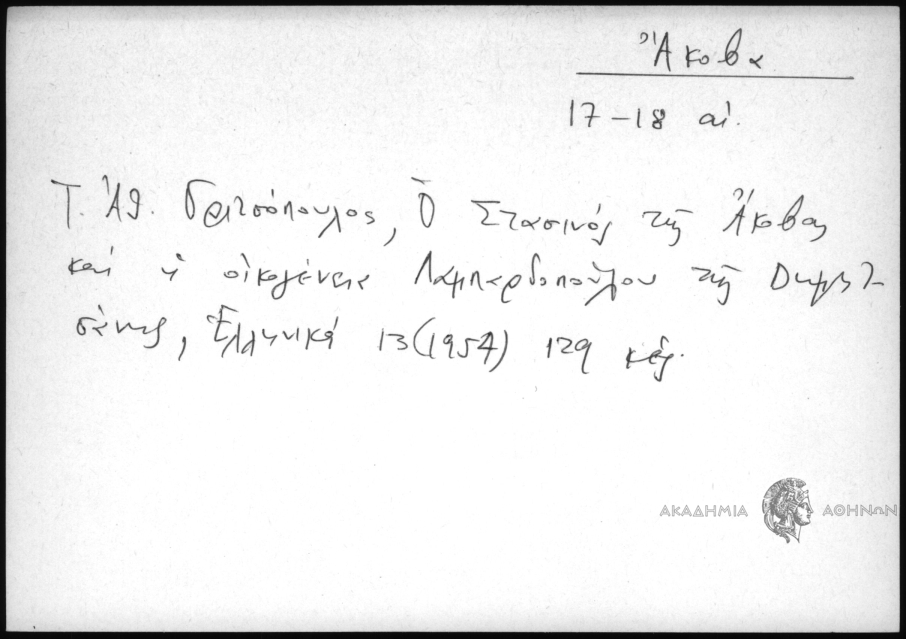 Ἄκοβα
17-18 αἰ.
Τ. Ἀθ. Γριτσόπουλος, Ὁ Στασινός τῆς Ἄκοβας
καί ἡ οἰκογένεια Λαμπαρδοπούλου τῆς Δημητ-
σάνης, Ἑλληνικά 13 (1954) 129 κἑξ.
ΑΚΑΔΗΜΙΑ ΑΘΗΝΩΝ